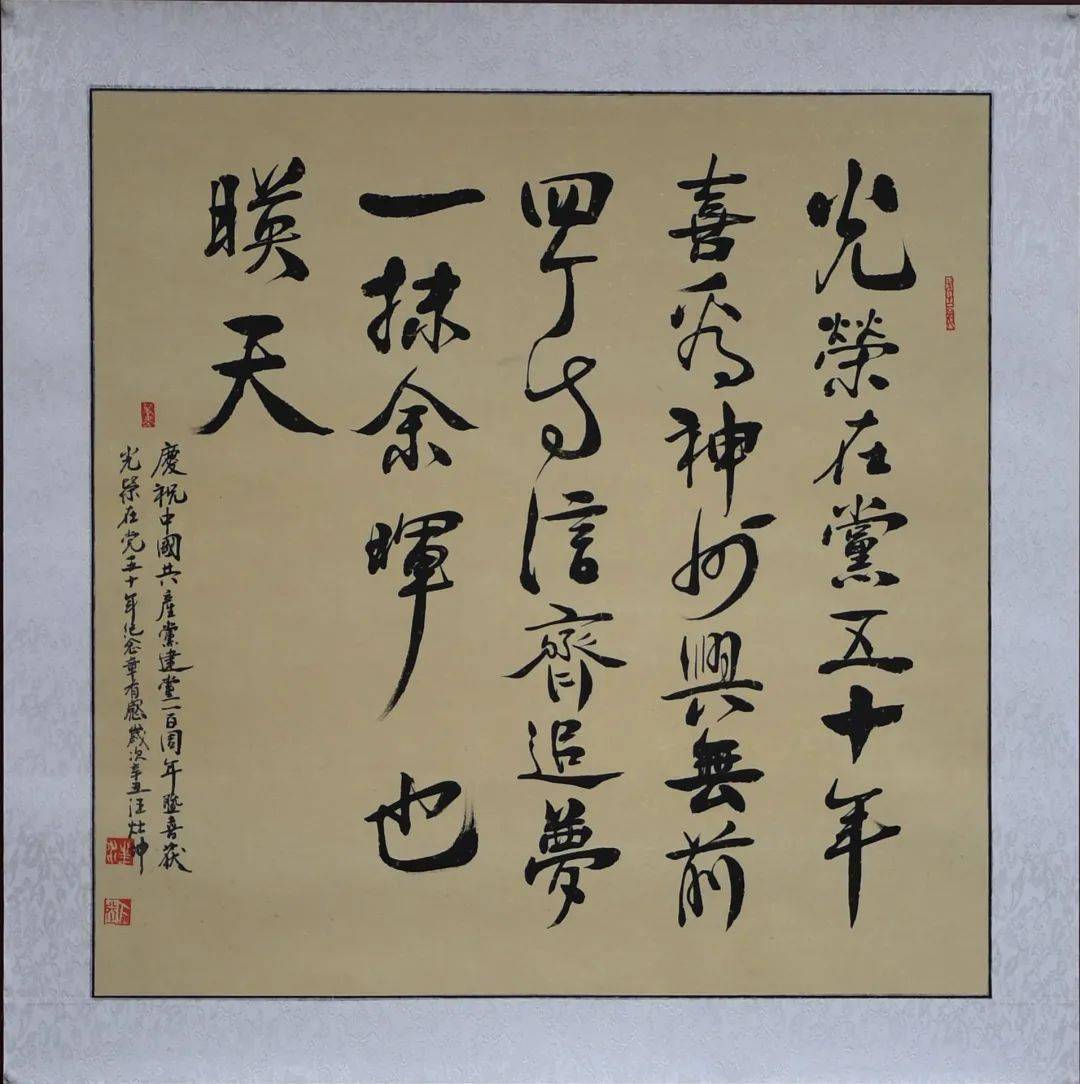 光榮在黨五十年
喜為神州興無前
四个自信齊追夢
一抹余暉也
暎天
慶祝中國共產黨建黨一百周年暨喜获
光荣在党五十年纪念章有感歲次辛丑汪灶坤